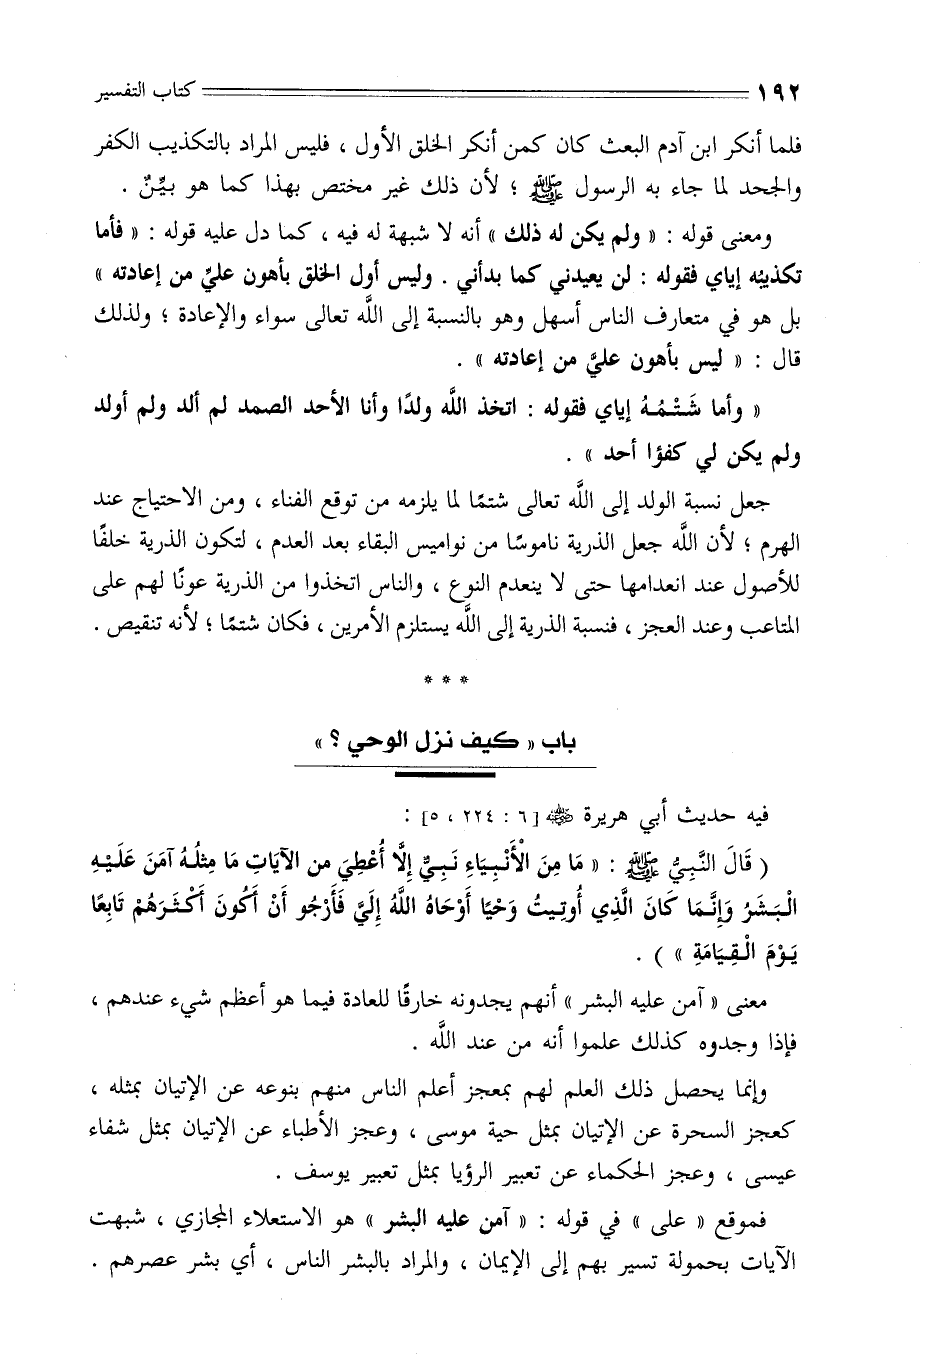 ١٩٢ كتاب التفسير
فلما أنكر ابن آدم البعث كان كمن أنكر الخلق الأول ، فليس المراد بالتكذيب الكفر
والجحد لما جاء به الرسول ﷺ ؛ لأن ذلك غير مختص بهذا كما هو بيِّنٌ .
ومعنى قوله : « ولم يكن له ذلك » أنه لا شبهة له فيه ، كما دل عليه قوله : « فأما
تكذيبُه إياي فقوله : لن يعيدني كما بدأني . وليس أول الخلق بأهون عليَّ من إعادته »
بل هو في متعارف الناس أسهل وهو بالنسبة إلى اللَّه تعالى سواء والإعادة ؛ ولذلك
قال : « ليس بأهون عليَّ من إعادته » .
« وأما شَتْمُهُ إياي فقوله : اتخذ اللَّه ولدًا وأنا الأحد الصمد لم ألد ولم أولد
ولم يكن لي كفؤا أحد » .
جعل نسبة الولد إلى اللَّه تعالى شتمًا لما يلزمه من توقع الفناء ، ومن الاحتياج عند
الهرم ؛ لأن اللَّه جعل الذرية ناموسًا من نواميس البقاء بعد العدم ، لتكون الذرية خلفًا
للأصول عند انعدامها حتى لا ينعدم النوع ، والناس اتخذوا من الذرية عونًا لهم على
المتاعب وعند العجز ، فنسبة الذرية إلى اللَّه يستلزم الأمرين ، فكان شتمًا ؛ لأنه تنقيص .
* * *
باب « كيف نزل الوحي ؟ »
فيه حديث أبي هريرة ﷺ [ ٦ : ٢٢٤ ، ٥] :
( قَالَ النَّبِيُّ ﷺ : « مَا مِنَ الْأَنْبِيَاءِ نَبِيٌّ إِلَّا أُعْطِيَ من الآيَاتِ مَا مِثلُهُ آمَنَ عَلَيْهِ
الْبَشَرُ وَإِنَّمَا كَانَ الَّذِي أُوتِيتُ وَحْيًا أَوْحَاهُ اللَّهُ إِلَيَّ فَأَرْجُو أَنْ أَكُونَ أَكْثَرَهُمْ تَابِعًا
يَوْمَ الْقِيَامَةِ » ) .
معنى « آمن عليه البشر » أنهم يجدونه خارقًا للعادة فيما هو أعظم شيء عندهم ،
فإذا وجدوه كذلك علموا أنه من عند اللَّه .
وإنما يحصل ذلك العلم لهم بمعجز أعلم الناس منهم بنوعه عن الإتيان بمثله ،
كعجز السحرة عن الإتيان بمثل حية موسى ، وعجز الأطباء عن الإتيان بمثل شفاء
عيسى ، وعجز الحكماء عن تعبير الرؤيا بمثل تعبير يوسف .
فموقع « على » في قوله : « آمن عليه البشر » هو الاستعلاء المجازي ، شبهت
الآيات بحمولة تسير بهم إلى الإيمان ، والمراد بالبشر الناس ، أي بشر عصرهم .